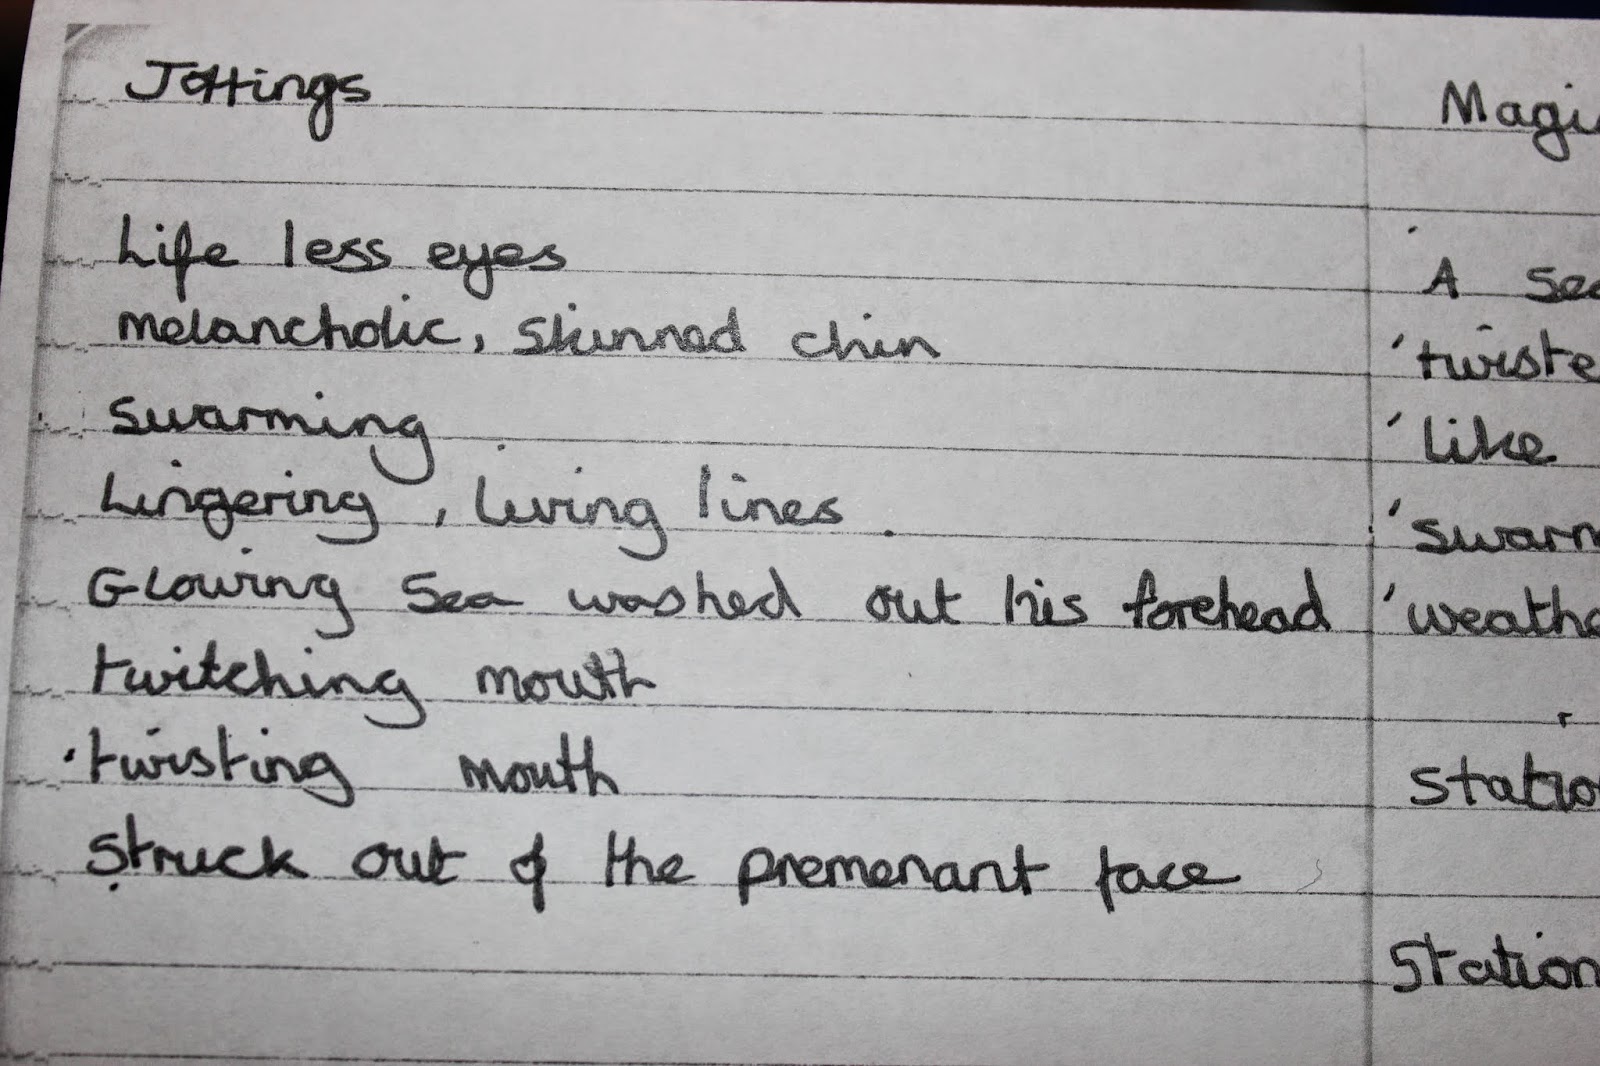 Jottings
Life less eyes
melancholic, skinned chin
swarming
Lingering, living lines.
Glowing Sea washed out his forehead
twitching mouth
twisting mouth
struck out of the premenant face
Magi
A sea
'twiste
'like
'swarm
'weathe
statio
Station